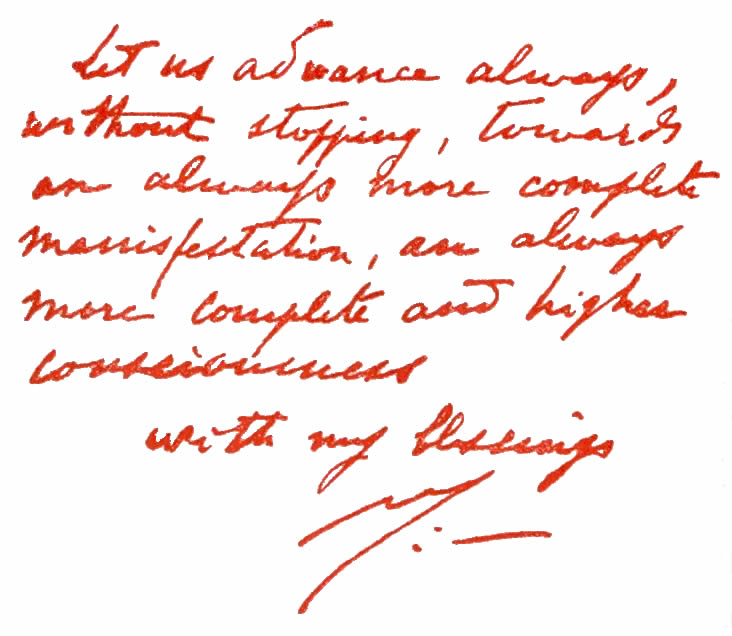 Let us advance always,
without stopping, towards
an always more complete
manifestation, an always
more complete and higher
consciousness
with my blessings